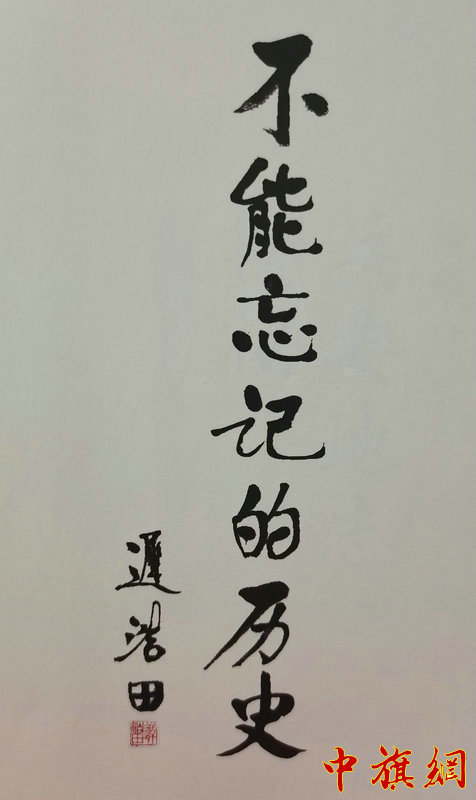 不能忘记的历史
遲浩田
中旗網